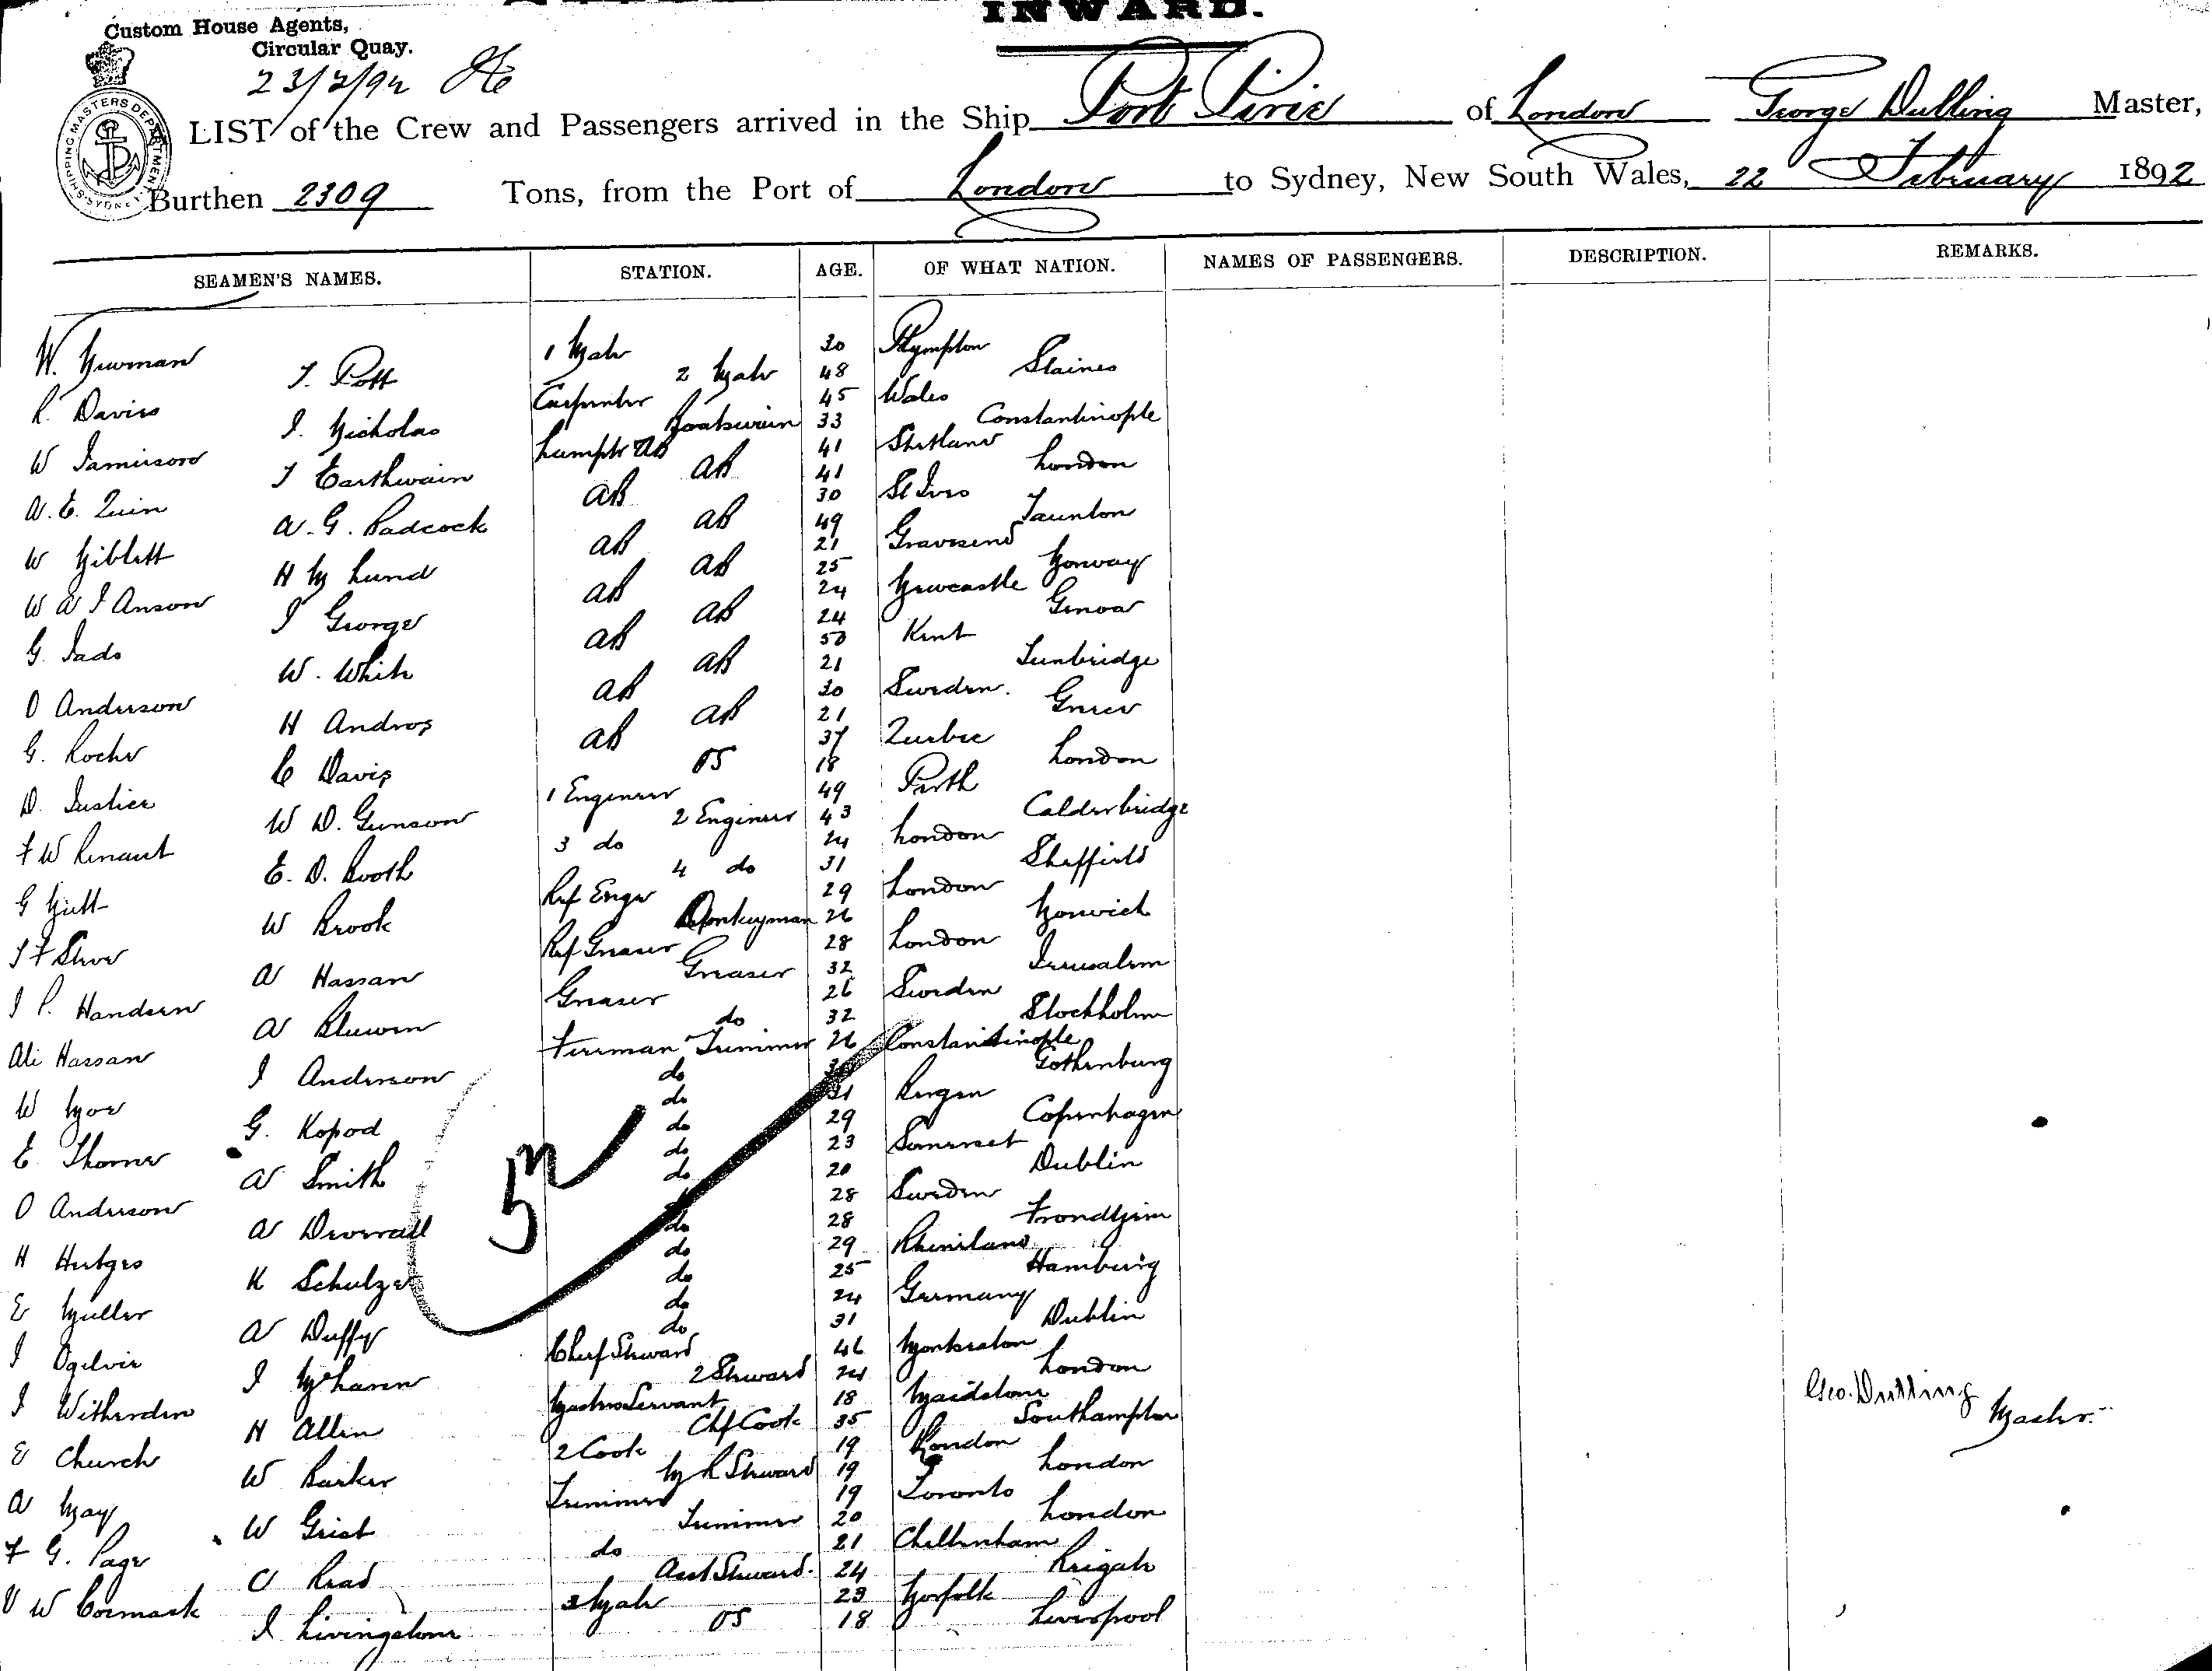 INWARD.
Custom House Agents,
Circular Quay.
23/2/92
SHIPPING MASTERS DEPARTMENT SYDNEY
LIST of the Crew and Passengers arrived in the Ship Port Pirie of London George Dulling Master,
Burthen 2309 Tons, from the Port of London to Sydney, New South Wales, 22 February 1892
SEAMEN'S NAMES. STATION. AGE. OF WHAT NATION. NAMES OF PASSENGERS. DESCRIPTION. REMARKS.
W. Newman 1 Mate 30 Plympton
T. Pott 2 Mate 48 Staines
R. Davies Carpenter 45 Wales
J. Nicholas Boatswain 33 Constantinople
W Jamieson Lamptr AB 41 Shetland
T Earthwain AB 41 London
A. E. Quin AB 30 St Ives
A. G. Badcock AB 49 Taunton
W Niblett AB 21 Gravesend
H M Lund AB 25 Norway
W A J Anson AB 24 Newcastle
J George AB 24 Genoa
G. Jado AB 50 Kent
W. White AB 21 Tunbridge
O Anderson AB 30 Sweden.
H Andros AB 21 Greece
G. Roche AB 37 Quebec
C Davis OS 18 London
D. Justice 1 Engineer 49 Perth
W D. Gunson 2 Engineer 43 Calderbridge
F W Renaut 3 do 24 London
E. D. Booth 4 do 31 Sheffield
G Nutt Ref Engr 29 London
W Brook Donkeyman 26 Norwich
T F Stove Ref Greaser 28 London
A Hassan Greaser 32 Jerusalem
J P. Handsen Greaser 26 Sweden
A Bluwen do 32 Stockholm
Ali Hassan Fireman Trimmer 26 Constantinople
J Anderson do Gothenburg
W Moe do 31 Bergen
G. Kopod do 29 Copenhagen
E Thorne do 23 Somerset
A Smith do 20 Dublin
O Anderson 28 Sweden
A Deverall do 28 Trondhjim
H Hutges do 29 Rhineland
K Schulze do 25 Hamburg
E Muller do 24 Germany
A Duffy do 31 Dublin
J Ogilvie Chief Steward 46 Monkseaton
J McLaren 2 Steward 24 London
J Witherden Masters Servant 18 Maidstone
H Allen Chf Cook 35 Southampton
E Church 2 Cook 19 London
W Barker M R Steward 19 London
A May Trimmer 19 Toronto
W Grist Trimmer 20 London
F G. Page do 21 Cheltenham
C Read Asst Steward. 24 Reigate
W Cormack 3 Mate 23 Norfolk
J Livingstone OS 18 Liverpool
Geo. Dulling
Master.